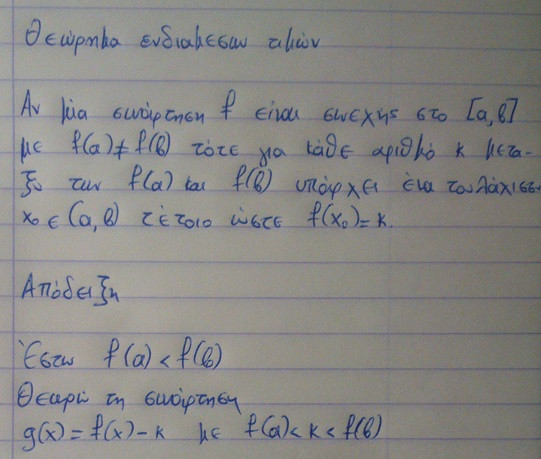 Θεώρημα ενδιαμεσων τιμών
Αν μία συνάρτηση f είναι συνεχής στο [a,b]
με f(a)≠f(b) τότε για κάθε αριθμό κ μετα-
ξυ των f(a) και f(b) υπάρχει ένα τουλάχισ
x₀ ∈ (a,b) τέτοιο ώστε f(x₀)=κ.
Απόδειξη
Έστω f(a)<f(b)
Θεωρώ τη συνάρτηση
g(x)=f(x)-κ με f(a)<κ<f(b)